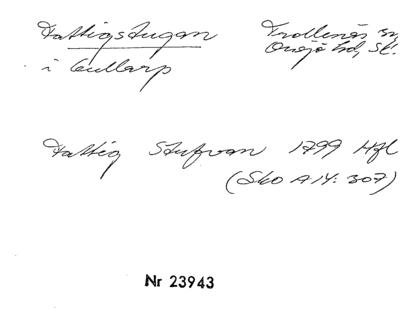 Fattigstugan
i Gullarp
Trollenäs sn,
Onsjö hd, Sk.
Fattig Stufvan 1799 Hfl
(Sko A 14: 307)
Nr 23943